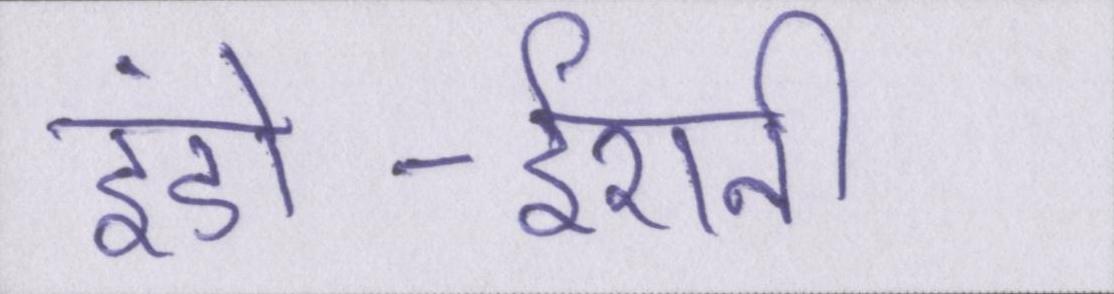 इंडो-ईरानी